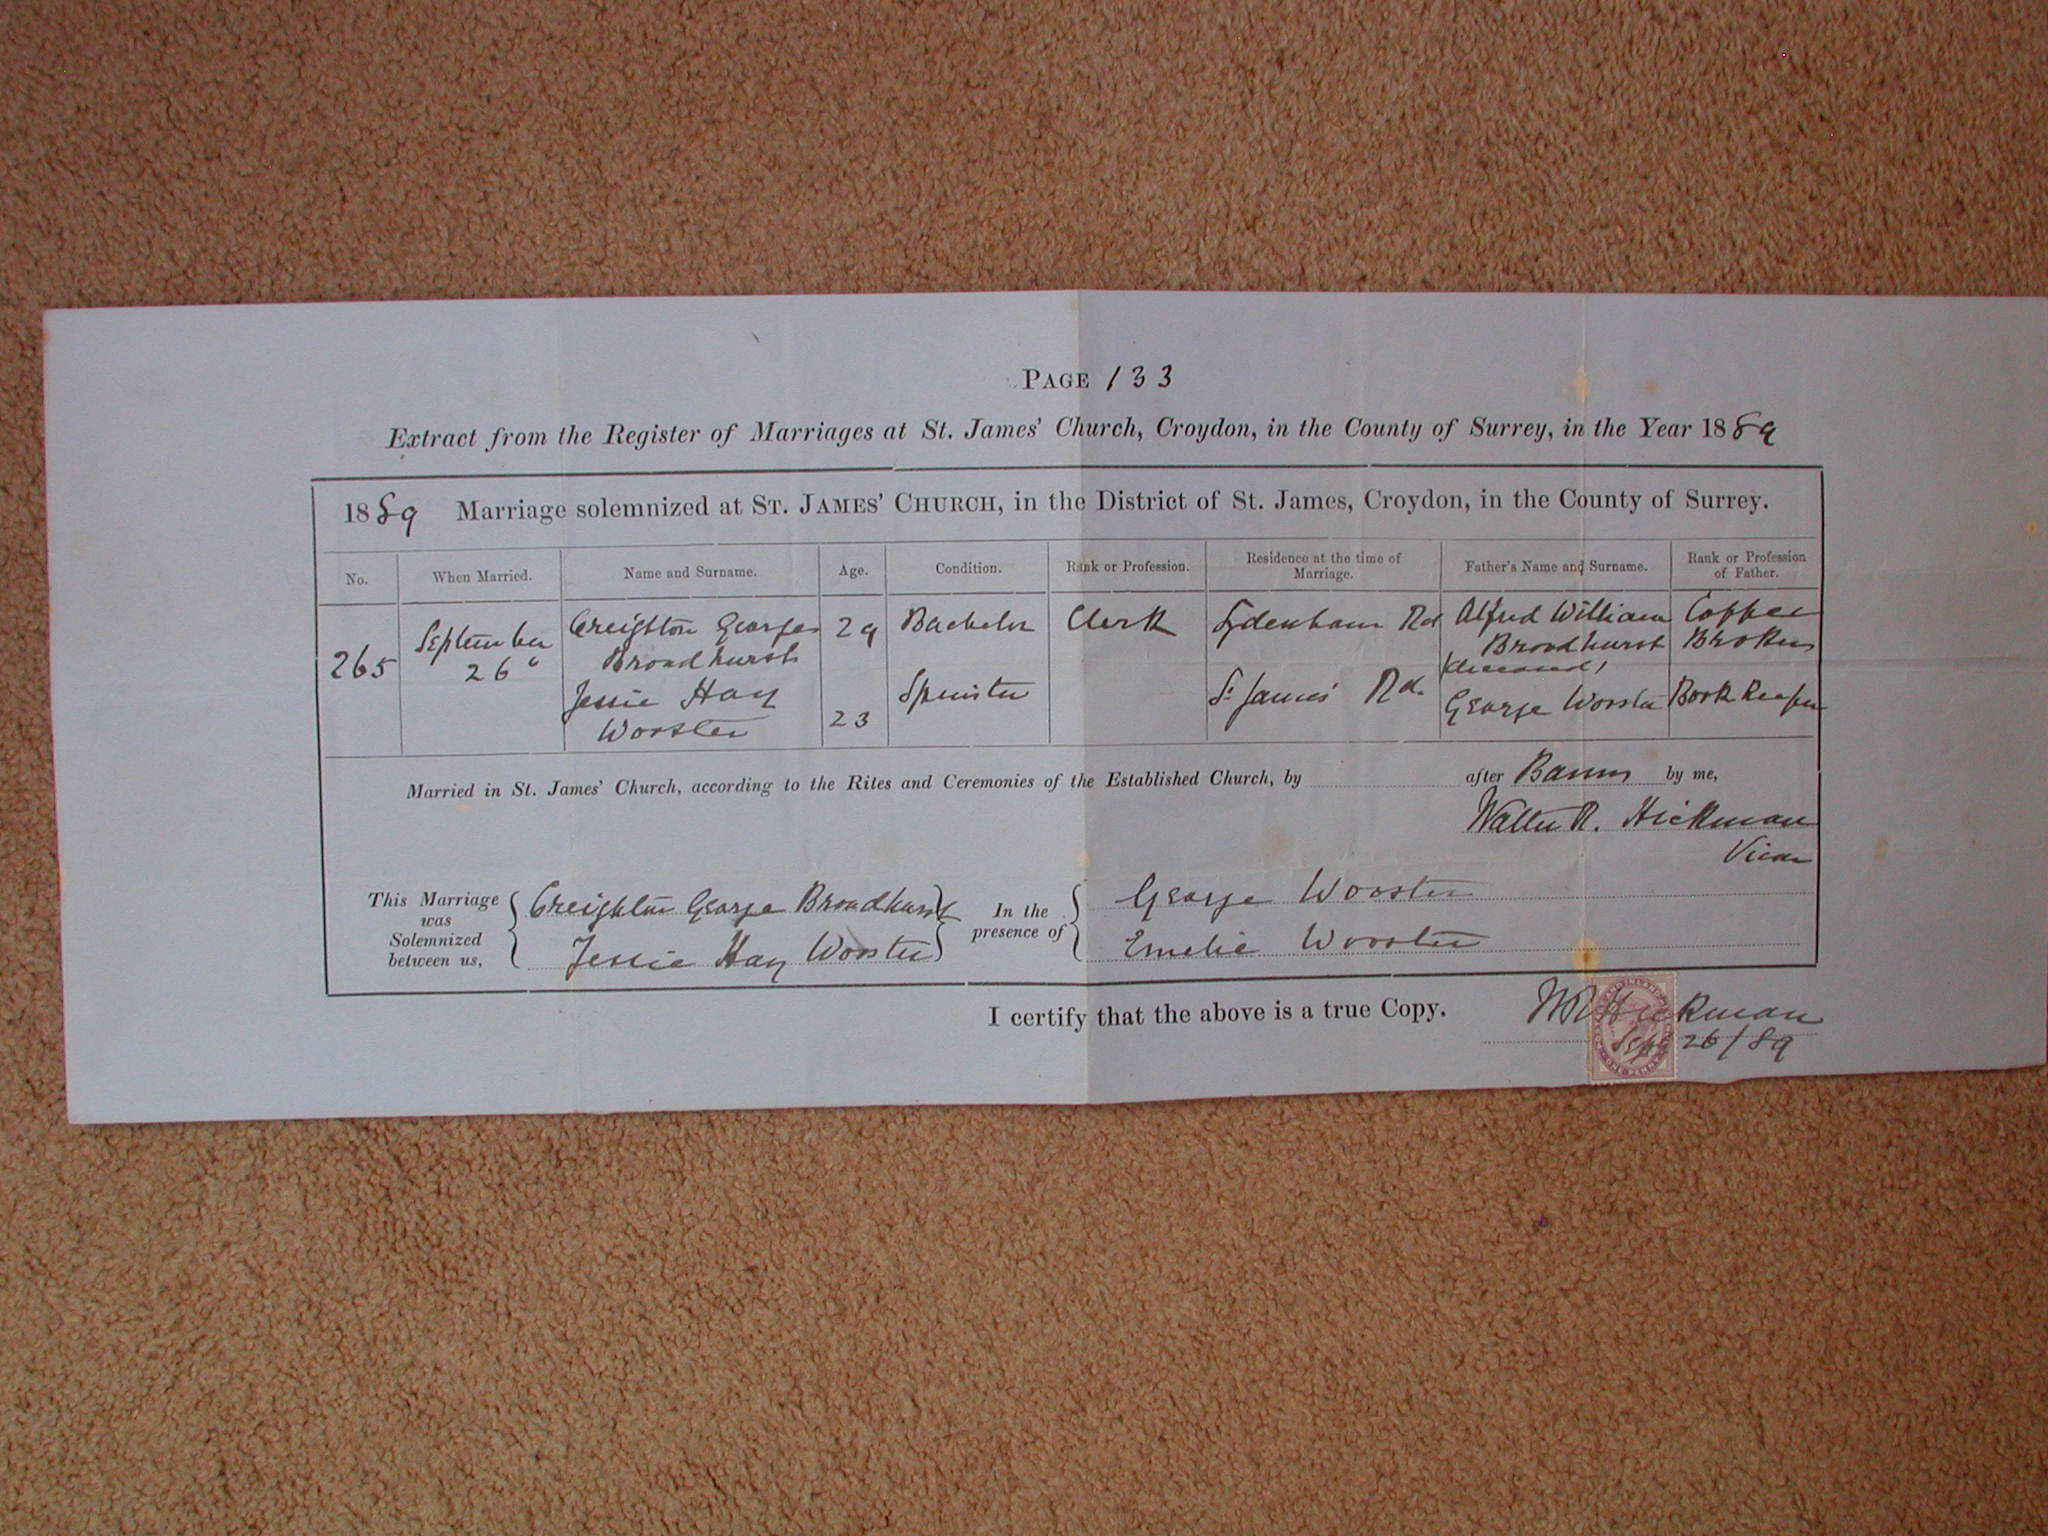 PAGE 133
Extract from the Register of Marriages at St. James' Church, Croydon, in the County of Surrey, in the Year 1889
1889 Marriage solemnized at ST. JAMES' CHURCH, in the District of St. James, Croydon, in the County of Surrey.
No. When Married. Name and Surname. Age. Condition. Rank or Profession. Residence at the time of Marriage. Father's Name and Surname. Rank or Profession of Father.
265 September 26 Creighton George Broadhurst 29 Bachelor Clerk Sydenham Rd Alfred William Broadhurst (deceased) Coffee Broker
Jessie Hay Wooster 23 Spinster St James' Rd. George Wooster Book Keeper
Married in St. James' Church, according to the Rites and Ceremonies of the Established Church, by after Banns by me,
Walter R. Hickman
Vicar
This Marriage was Solemnized between us, Creighton George Broadhurst
Jessie Hay Wooster
In the presence of George Wooster
Emelie Wooster
I certify that the above is a true Copy. WR Hickman
Sept 26/89
ONE PENNY